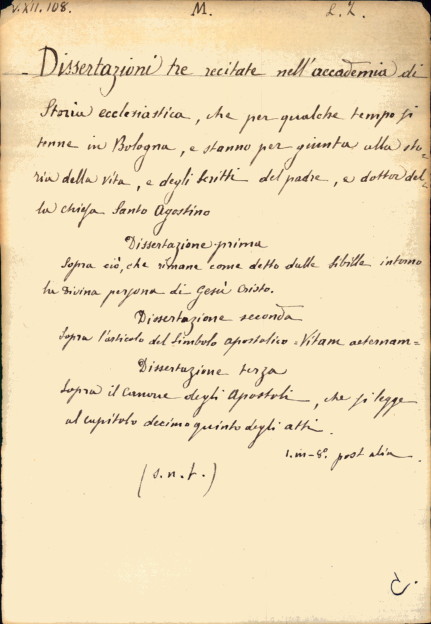 V.XII.108. M. L. Z.
Dissertazioni tre recitate nell'accademia di
Storia ecclesiastica, che per qualche tempo si
tenne in Bologna, e stanno per giunta alla sto=
ria della vita, e degli scritti del padre, e dottor del=
la chiesa Santo Agostino
Dissertazione prima
Sopra ciò, che rimane come detto dalle Sibille intorno
la Divina persona di Gesù Cristo.
Dissertazione seconda
Sopra l'articolo del Simbolo apostolico =Vitam aeternam=
Dissertazione terza
Sopra il Canone degli Apostoli, che si legge
al capitolo decimo quinto degli atti.
1. in-8º. post alia.
(s.n.t.)